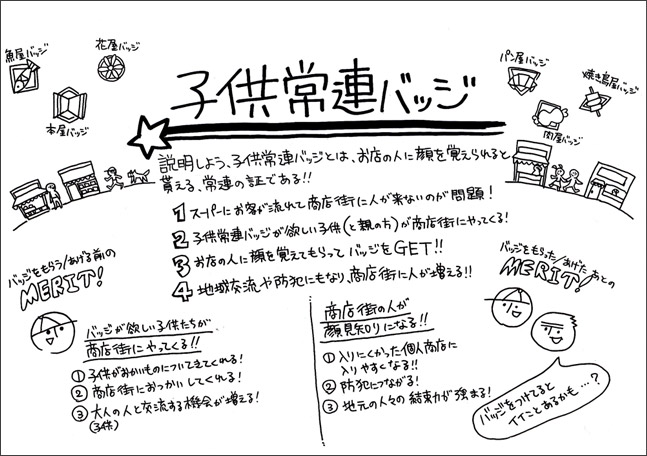 子供常連バッジ
魚屋バッジ
花屋バッジ
本屋バッジ
パン屋バッジ
焼き鳥屋バッジ
肉屋バッジ
説明しよう、子供常連バッジとは、お店の人に顔を覚えられると
貰える、常連の証である!!
1 スーパーにお客が流れて商店街に人が来ないのが問題!
2 子供常連バッジが欲しい子供(と親の方)が商店街にやってくる!
3 お店の人に顔を覚えてもらってバッジをGET!!
4 地域交流や防犯にもなり、商店街に人が増える!!
バッジをもらう/あげる前の
MERIT!
バッジが欲しい子供たちが
商店街にやってくる!!
① 子供がおかいものについてきてくれる!
② 商店街におつかいしてくれる!
③ 大人の人と交流する機会が増える!
(子供)
商店街の人が
顔見知りになる!!
① 入りにくかった個人商店に
入りやすくなる!!
② 防犯につながる!
③ 地元の人々の結束力が強まる!
バッジをもらった/あげたあとの
MERIT!
バッジをつけてると
イイことあるかも…?